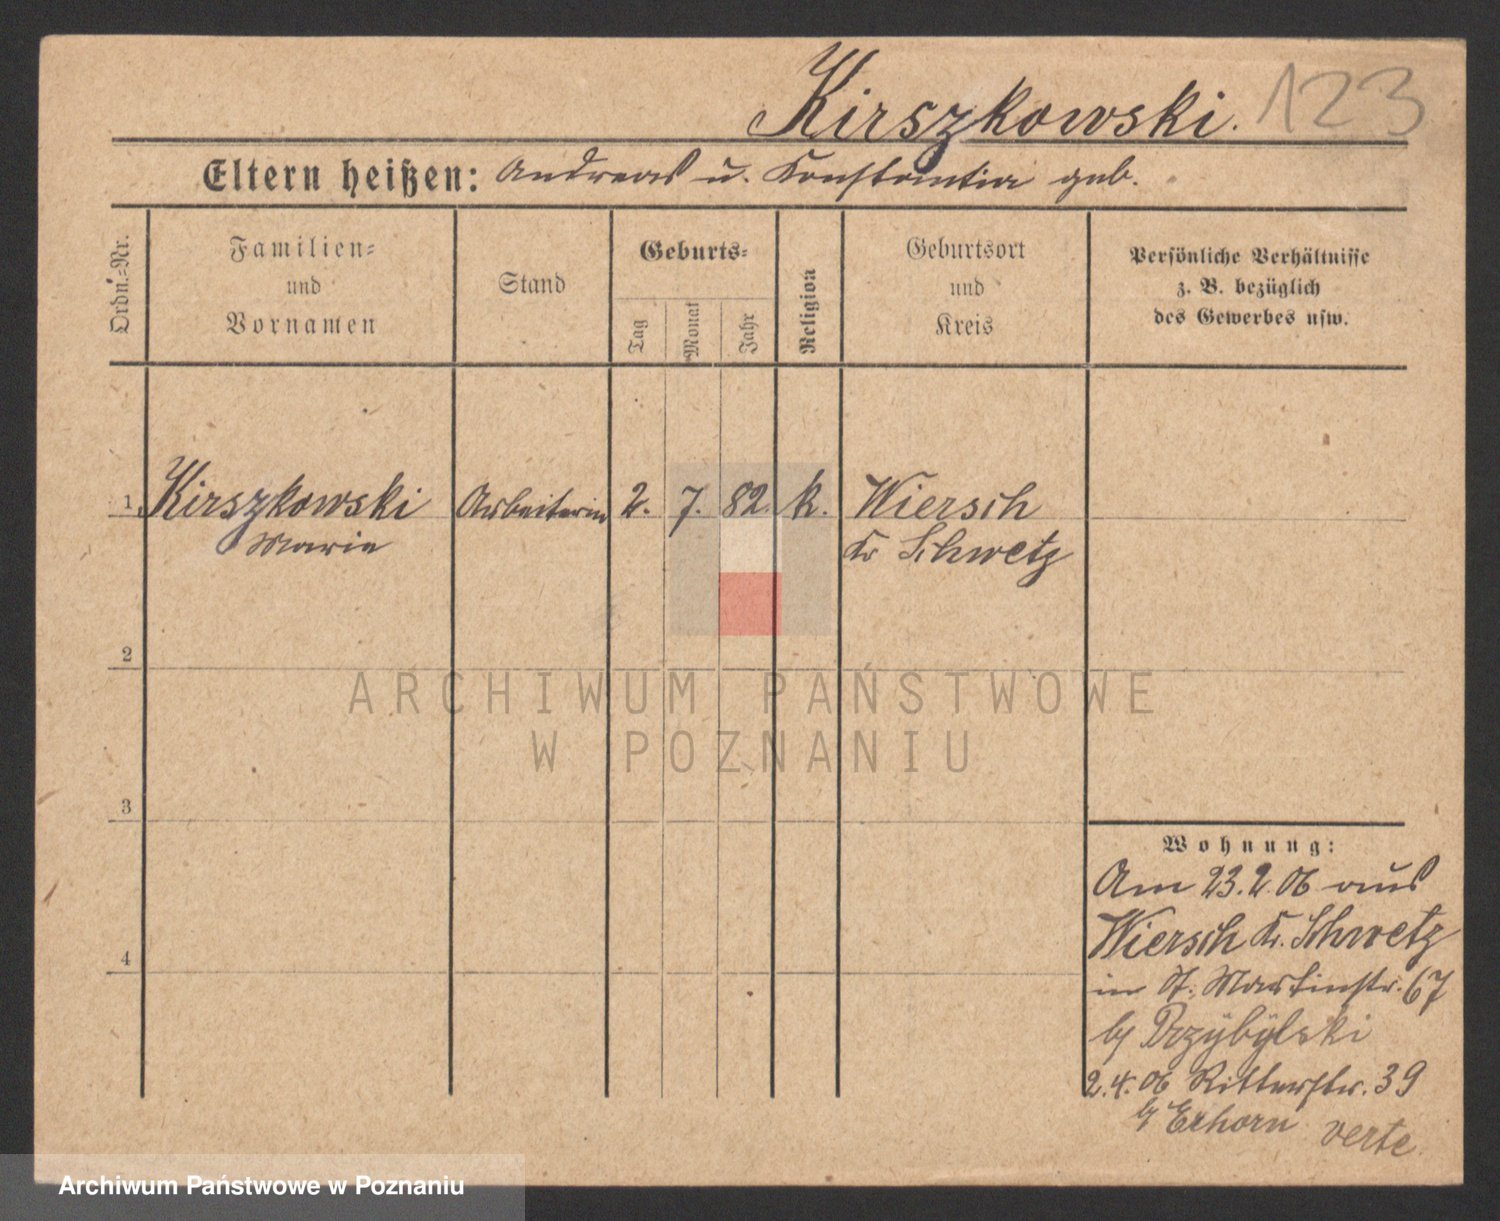 Kirszkowski. 123
Eltern heißen: Andreas u. Konstantia geb.
Ordn.-Nr.
Familien-
und
Vornamen
Stand
Geburts-
Tag
Monat
Jahr
Religion
Geburtsort
und
Kreis
Persönliche Verhältnisse
z. B. bezüglich
des Gewerbes usw.
1 Kirszkowski Arbeiterin 2. 7. 82. k. Wiersch
Marie Kr Schwetz
2
ARCHIWUM PAŃSTWOWE
W POZNANIU
3
Wohnung:
Am 23.2.06 aus
Wiersch Kr. Schwetz
4
in St. Martinstr. 67
bj Przÿbÿlski
2.4.06 Ritterstr. 39
bj Exhorn verte
Archiwum Państwowe w Poznaniu